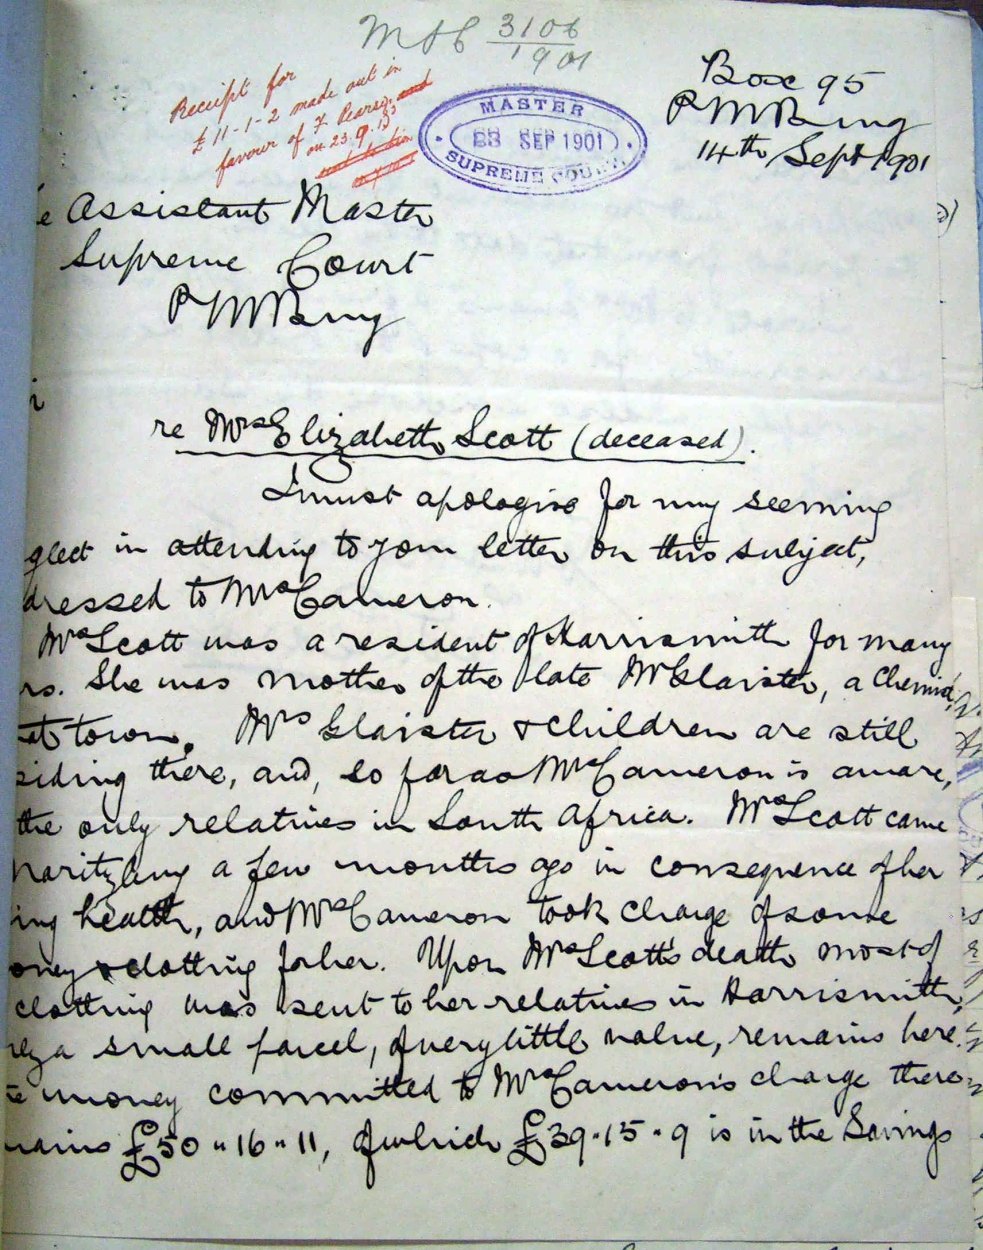 MSC 3106/1901
Receipt for
£11-1-2 made out in
favour of F Pearse
on 23.9.
MASTER
SEP 1901
SUPREME COU
Box 95
P M Burg
14th Sept 1901
e Assistant Master
Supreme Court
P M Burg
re Mrs Elizabeth Scott (deceased).
I must apologise for my seeming
glect in attending to your letter on this subject,
dressed to Mrs Cameron.
Mrs Scott was a resident of Harrismith for many
rs. She was mother of the late Mr Glaister, a Chemist,
at town. Mrs Glaister & children are still
siding there, and, so far as Mrs Cameron is aware,
the only relatives in South Africa. Mrs Scott came
maritzburg a few months ago in consequence of her
ing health, and Mrs Cameron took charge of some
oney & clothing for her. Upon Mrs Scott's death most of
clothing was sent to her relatives in Harrismith,
ly a small parcel, of very little value, remains here.
e money committed to Mrs Cameron's charge there
mains £50 " 16 " 11, of which £39 . 15 . 9 is in the Savings